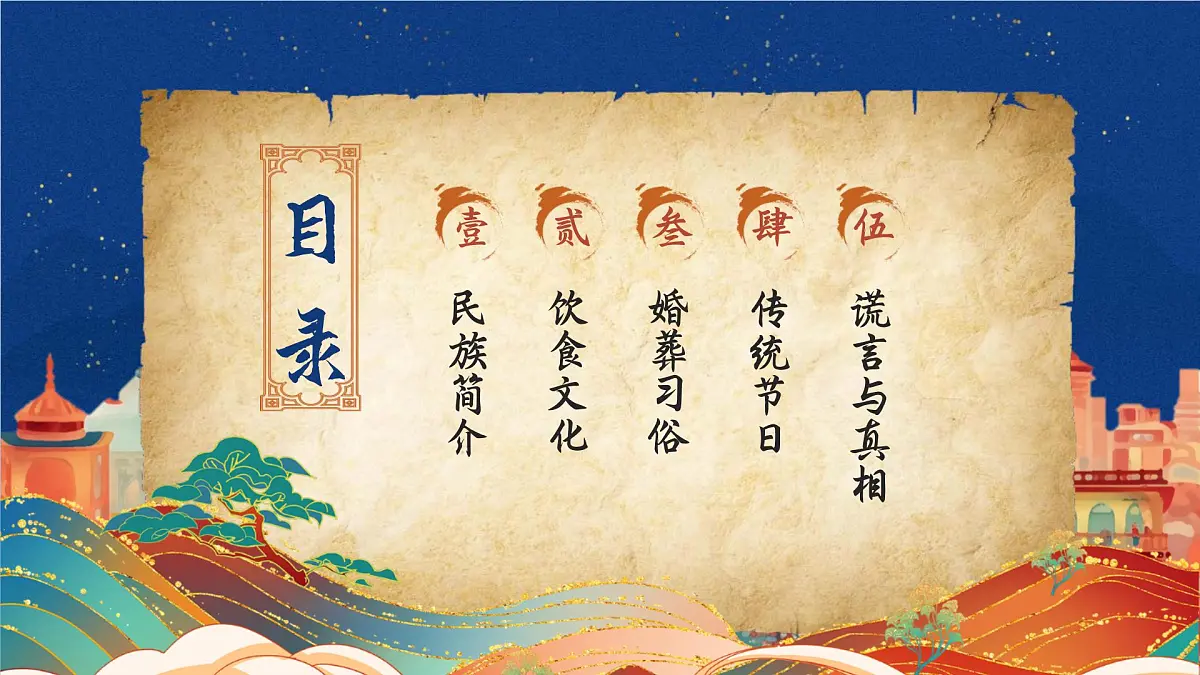 目录
壹
民族简介
贰
饮食文化
叁
婚葬习俗
肆
传统节日
伍
谎言与真相